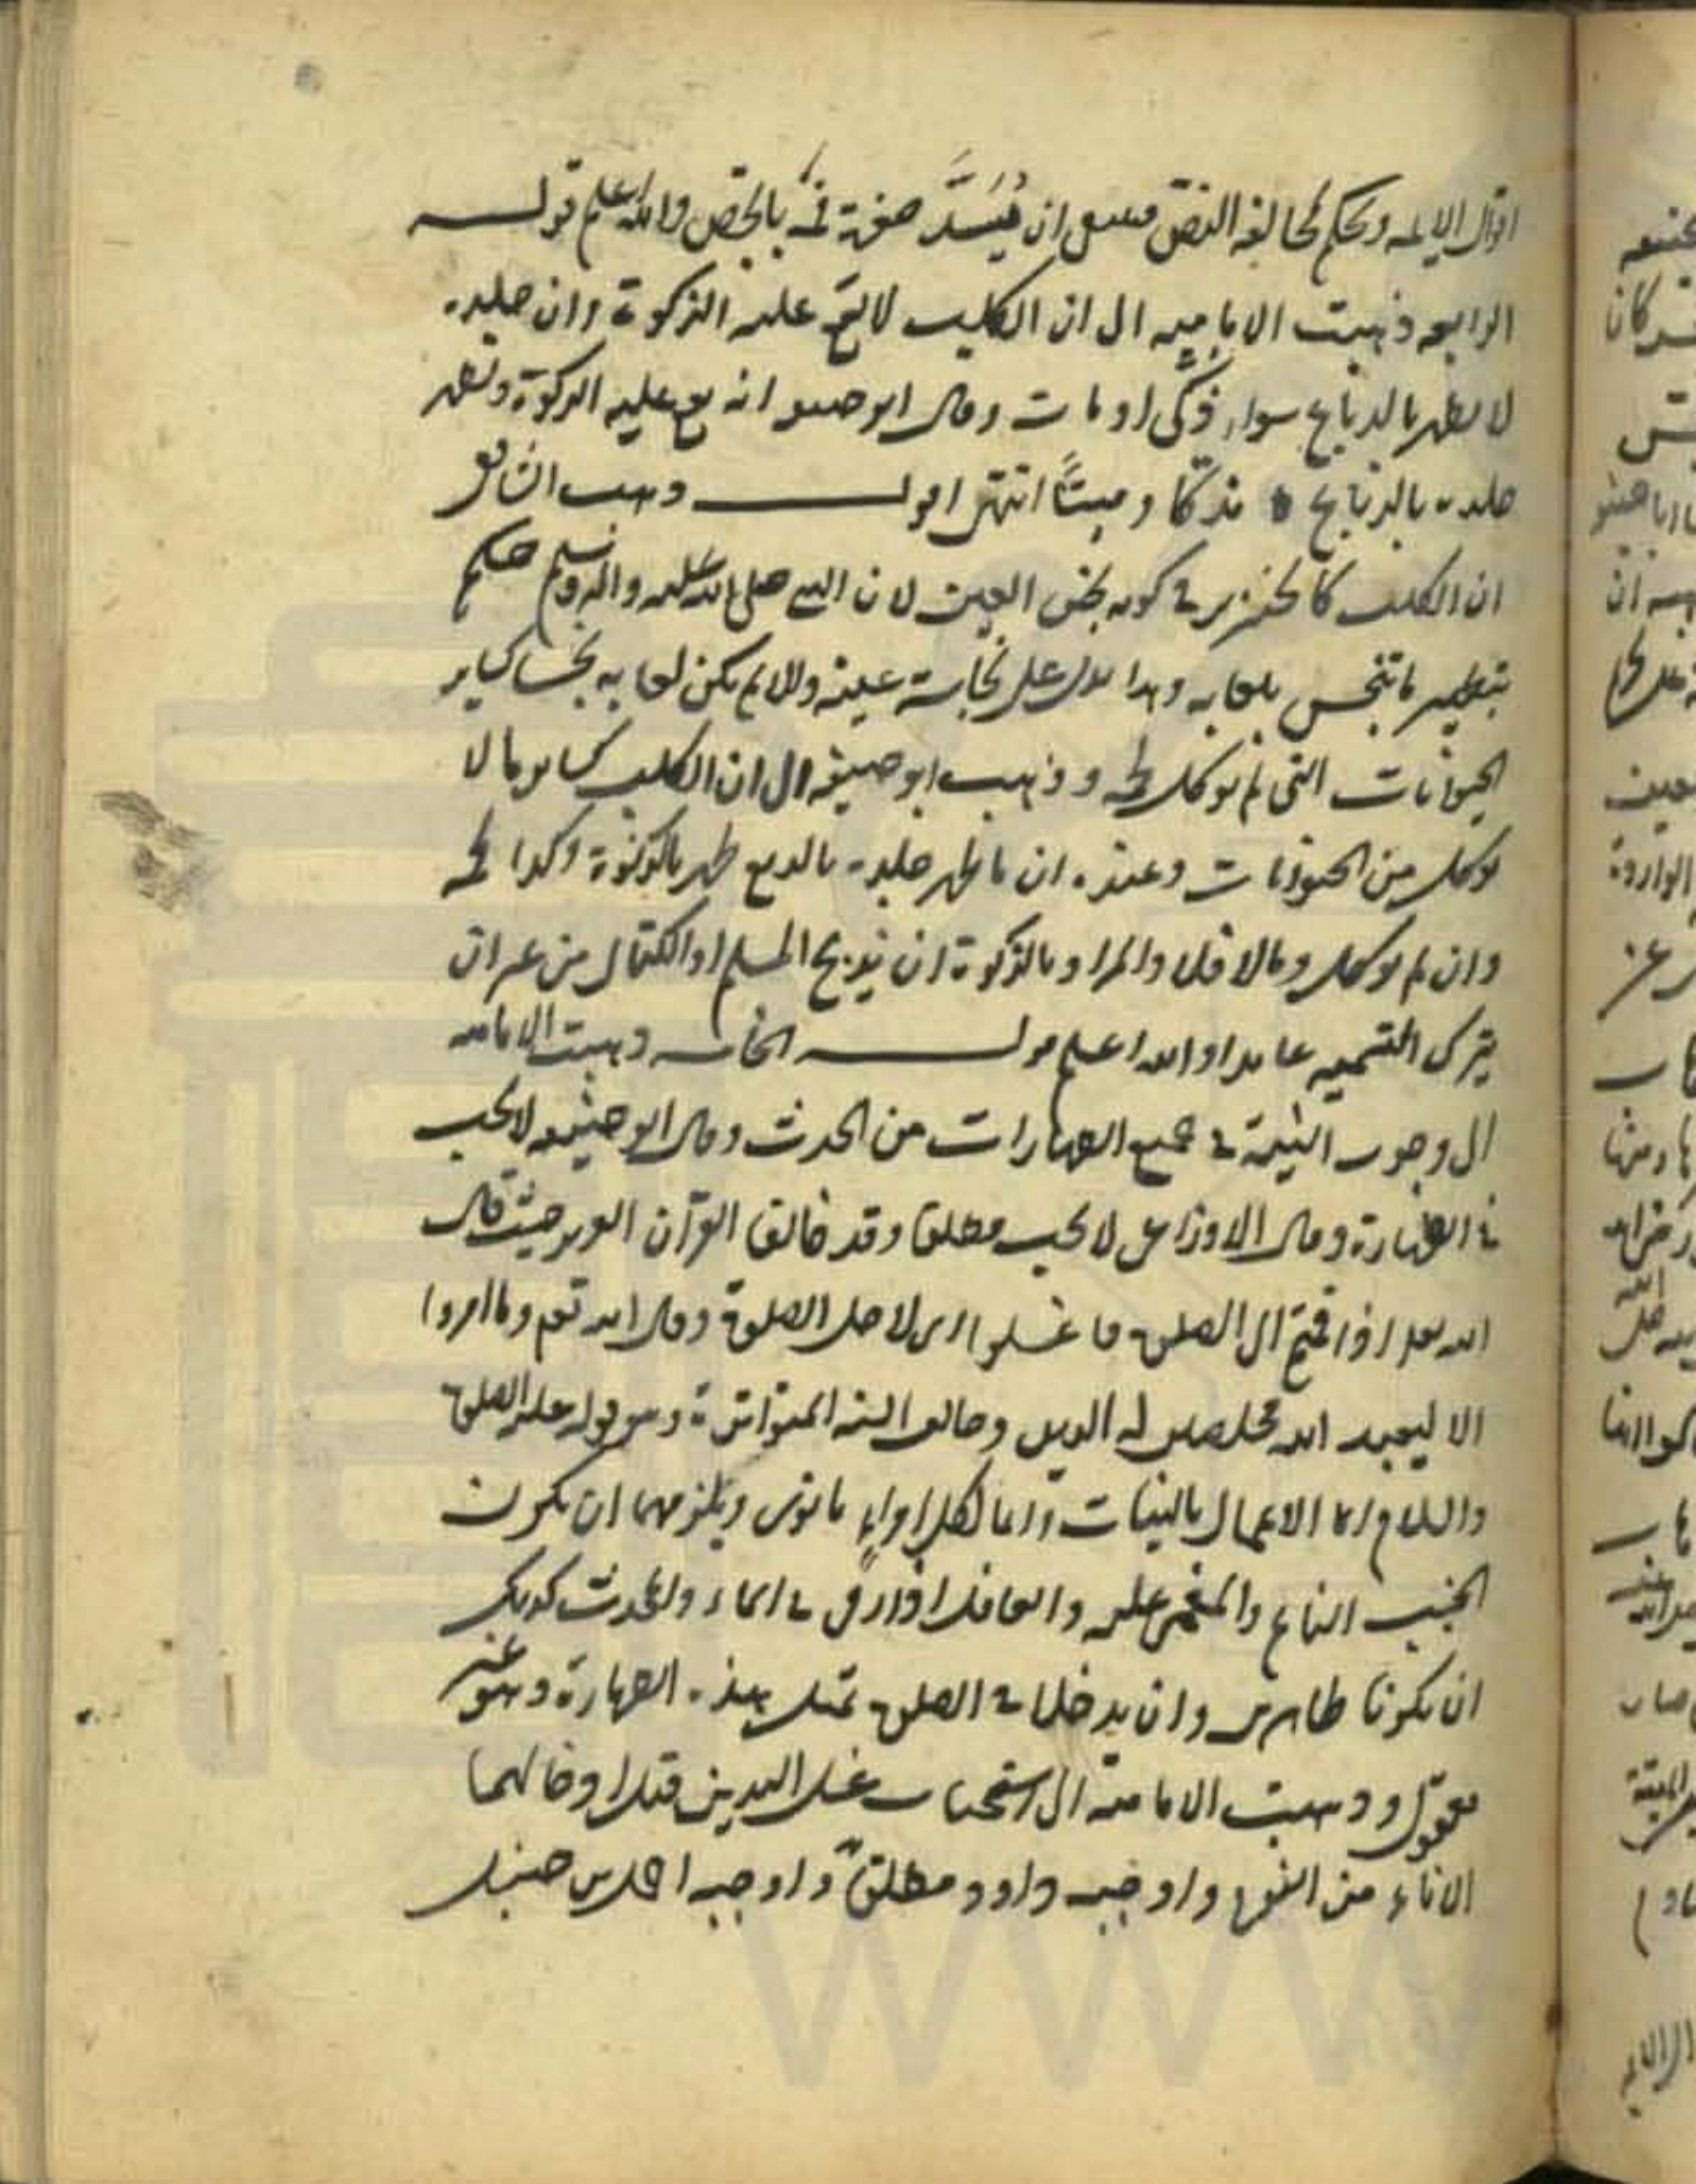 اقوال الايمه ويحكم لمخالفة النص فينبغى ان يُسَدَّ حفرة فمه بالجص والله اعلم قولـــه
الرابعه ذهبت الاماميه الى ان الكلب لا يقع عليه الذكوة وان جلده
لا يطهر بالدباغ سواء ذُكّى او مات وقال ابو حنيفه انه يقع عليه الذكوة ويطهر
جلده بالدباغ مذكا وميتًا انتهى اقولـــــــ ذهب الشافعى
ان الكلب كالخنزير فى كونه نجس العين لان النبى صلى الله عليه واله وسلم حكم
بتطهير ما تنجس بلعابه وهذا يدل على نجاسة عينه والا لم يكن لعابه نجسا كساير
الحيوانات التى لم يوكل لحمه وذهب ابو حنيفه الى ان الكلب كساير ما لا
يوكل من الحيوانات وعنده ان ما طهر جلده بالدبغ طهر بالذكوة وكذا لحمه
وان لم يوكل وما لا فلا والمراد بالذكوة ان يذبح المسلم او الكتابى من غير ان
يترك التسميه عامدا والله اعلم قولـــــــه الخامسه ذهبت الاماميه
الى وجوب النيّة فى جميع الطهارات من الحدث وقال ابو حنيفه لا يجب
فى الطهارة وقال الاوزاعى لا يجب مطلقا وقد خالفا القرآن العزيز حيث قال
الله تعالى اذا قمتم الى الصلوة فاغسلوا اى لاجل الصلوة وقال الله تعالى وما امروا
الا ليعبدوا الله مخلصين له الدين وخالفا السنه المتواترة وهى قوله عليه الصلوة
والسلام انما الاعمال بالنيات وانما لكل امرءٍ ما نوى ويلزمهما ان يكون
الجنب النايم والمغمى عليه والغافل اذا رمى فى الماء والمحدث كذلك
ان يكونا طاهرين وان يدخلا فى الصلوة بمثل هذه الطهارة وهو غير
معقول وذهبت الاماميه الى استحباب غسل اليدين قبل ادخالهما
الاناء من النوم واوجبه داود مطلقًا واوجبه احمد بن حنبل